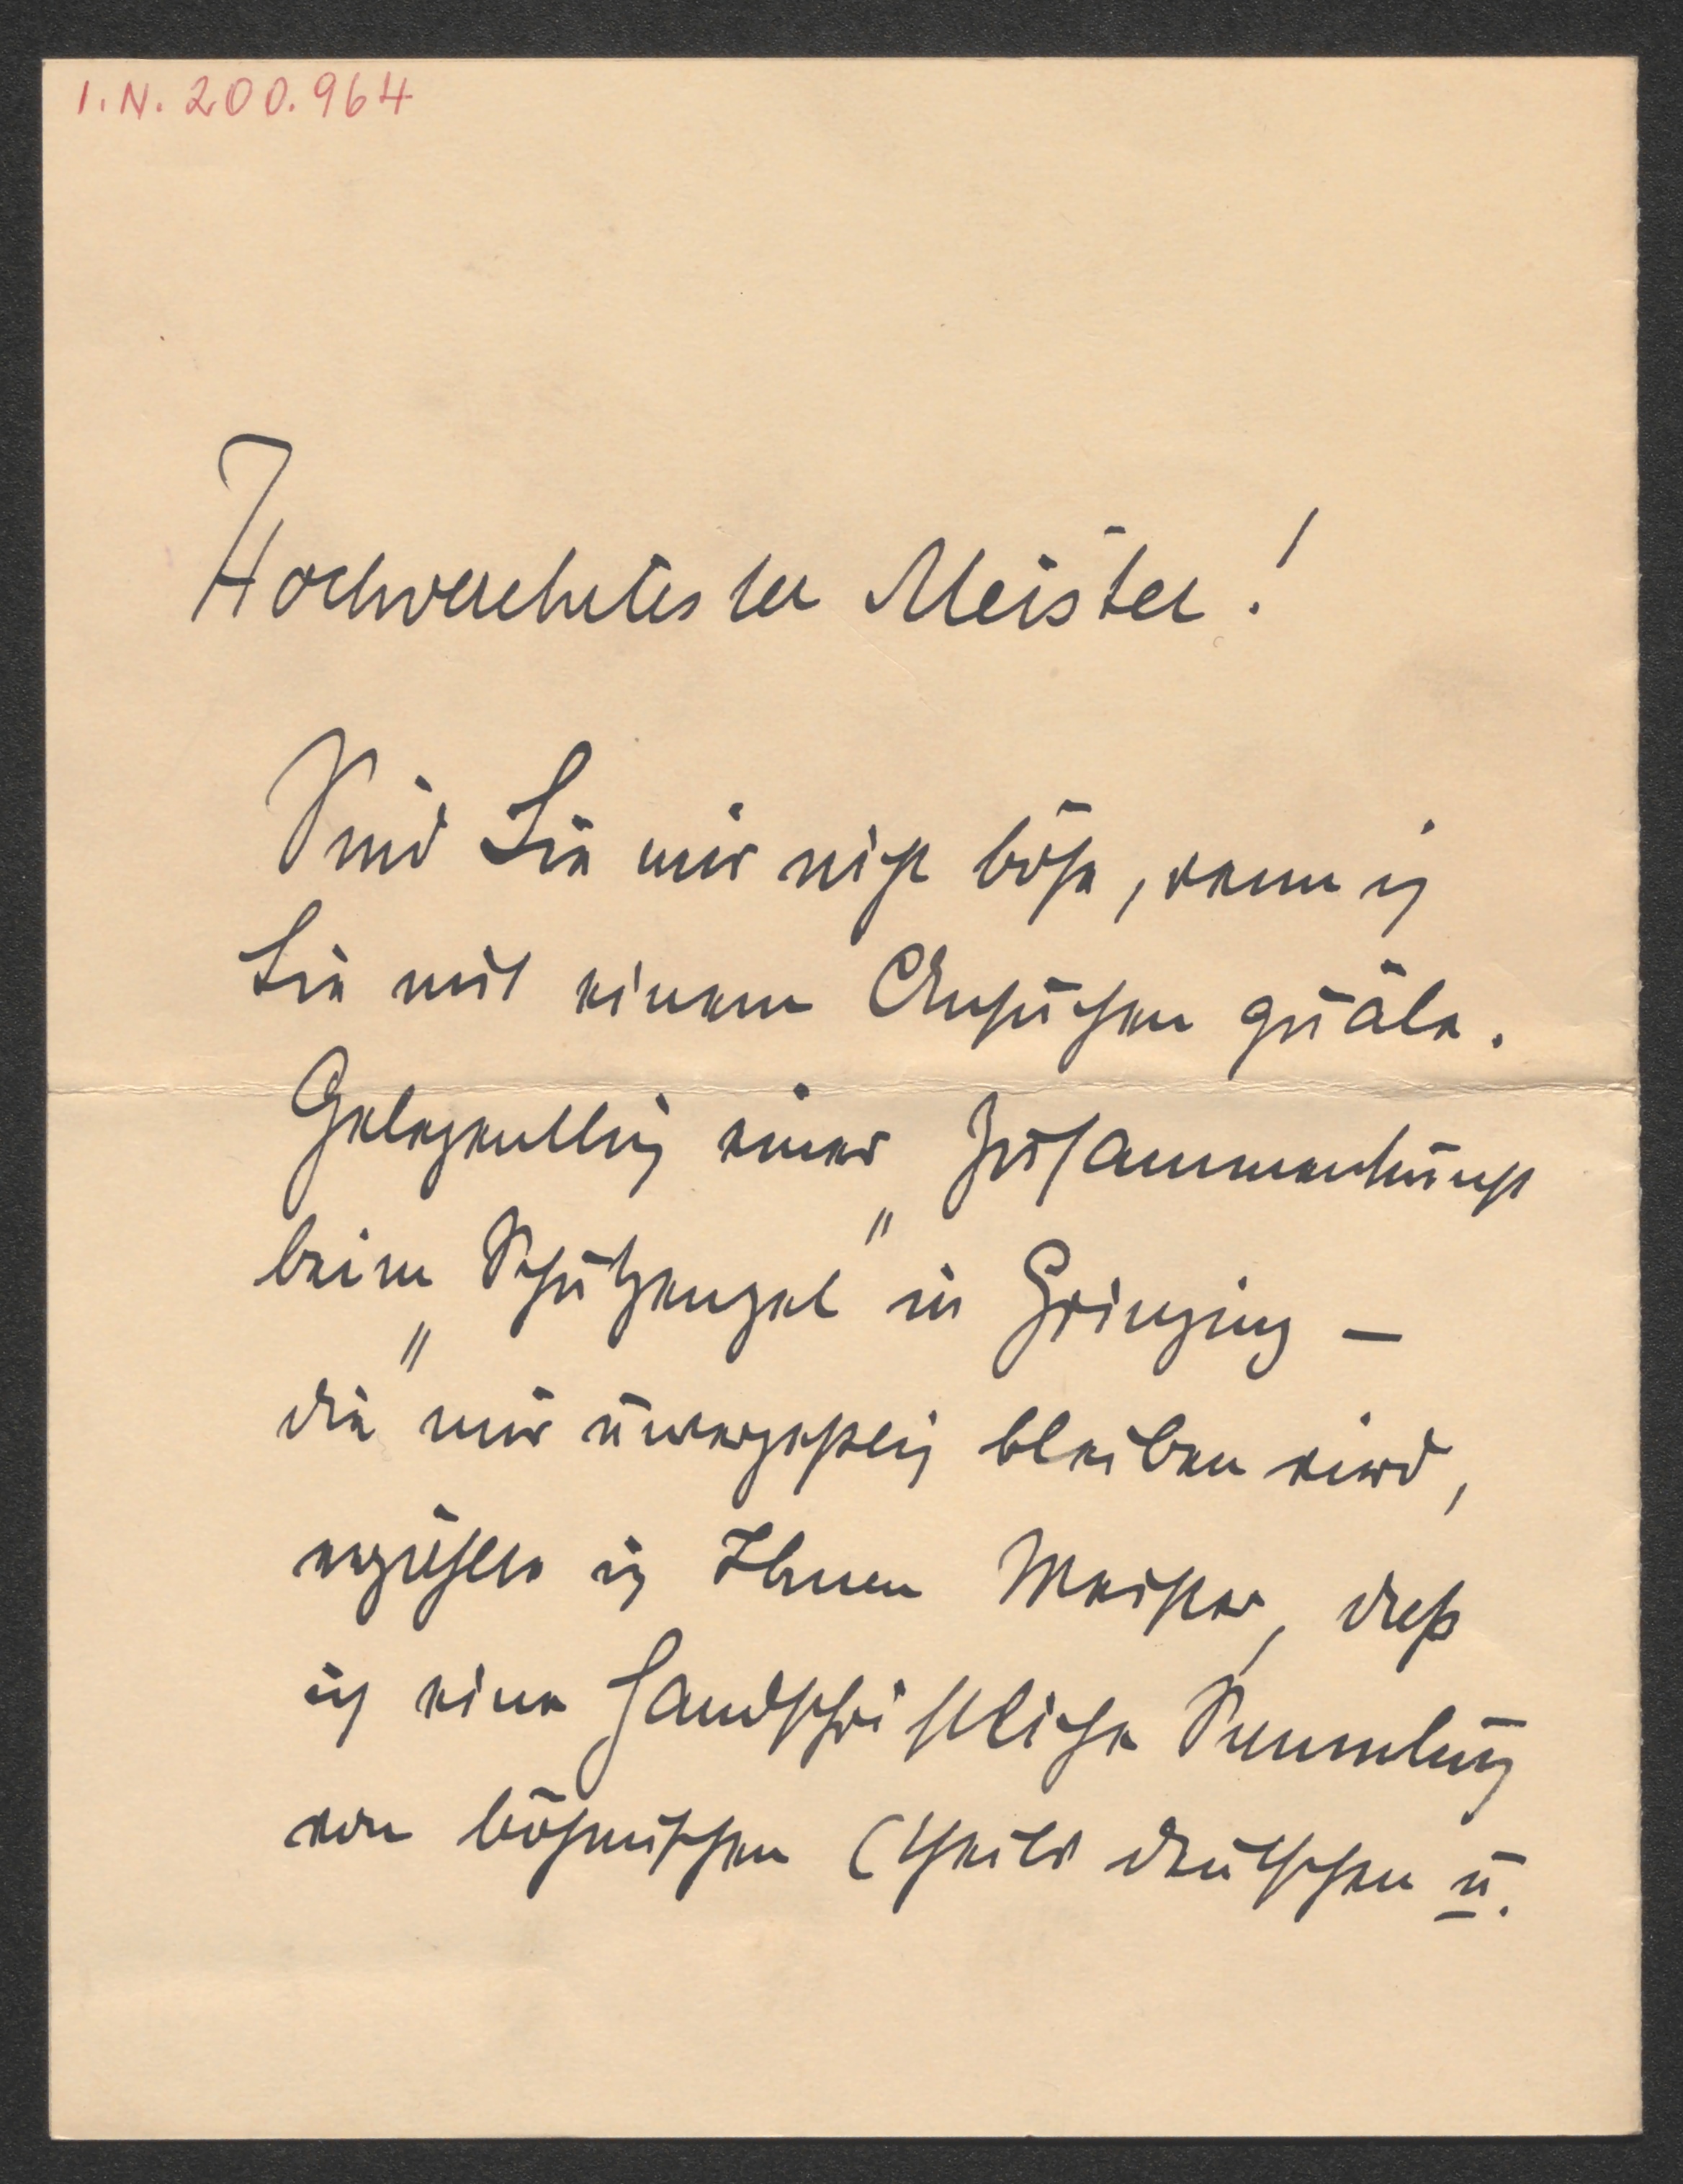 I.N. 200.964
Hochverehrtester Meister!
Sind Sie mir nicht böse, wenn ich
Sie mit einem Ansuchen quäle.
Gelegentlich einer Zusammenkunft
beim „Schutzengel" in Grinzing –
die mir unvergeßlich bleiben wird,
erzählte ich Ihnen Meister, daß
ich eine handschriftliche Sammlung
von böhmischen (theils deutschen u.